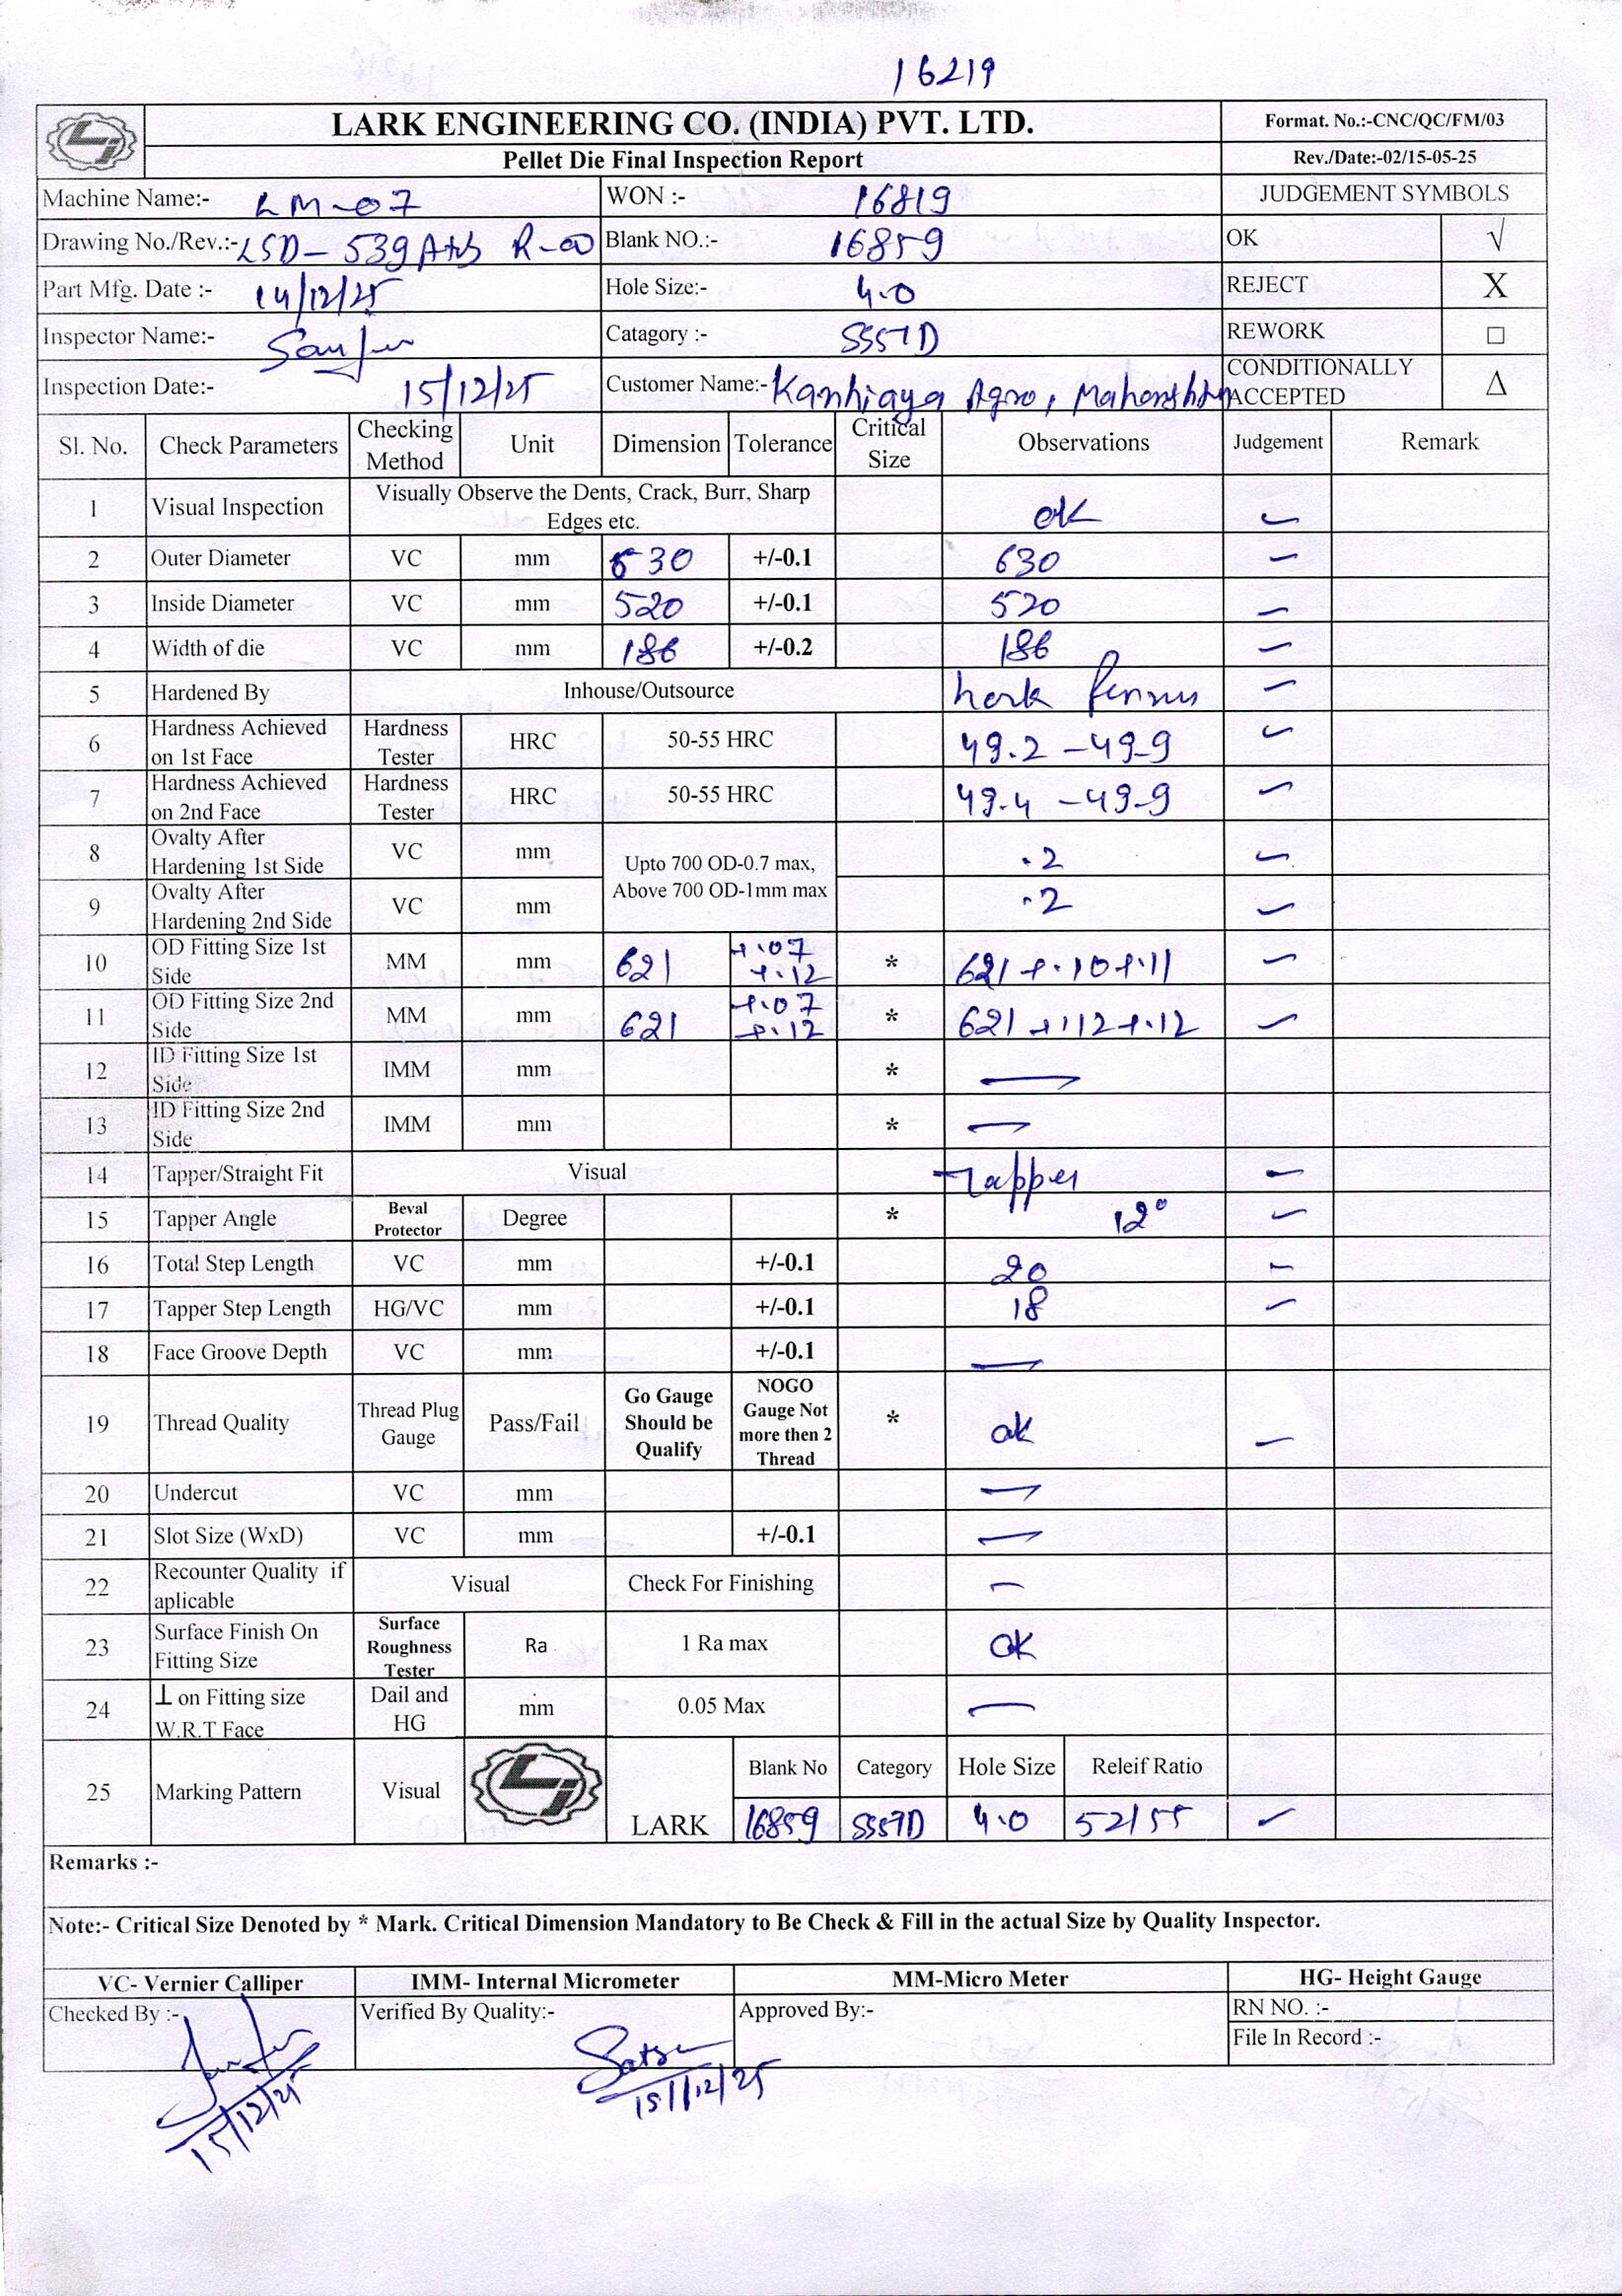 16219
LARK ENGINEERING CO. (INDIA) PVT. LTD.
Format. No.:-CNC/QC/FM/03
Pellet Die Final Inspection Report
Rev./Date:-02/15-05-25
Machine Name:- LM-07 WON :- 16819 JUDGEMENT SYMBOLS
Drawing No./Rev.:- LSD-539 R-00 Blank NO.:- 16859 OK √
Part Mfg. Date :- 14/12/25 Hole Size:- 4.0 REJECT X
Inspector Name:- Catagory :- SS57D REWORK □
Inspection Date:- 15/12/25 Customer Name:- Kanhiaya Agro, CONDITIONALLY ACCEPTED Δ
Sl. No. Check Parameters Checking Method Unit Dimension Tolerance Critical Size Observations Judgement Remark
1 Visual Inspection Visually Observe the Dents, Crack, Burr, Sharp Edges etc. ok
2 Outer Diameter VC mm 630 +/-0.1 630
3 Inside Diameter VC mm 520 +/-0.1 520
4 Width of die VC mm 186 +/-0.2 186
5 Hardened By Inhouse/Outsource
6 Hardness Achieved on 1st Face Hardness Tester HRC 50-55 HRC 49.2 - 49.9
7 Hardness Achieved on 2nd Face Hardness Tester HRC 50-55 HRC 49.4 - 49.9
8 Ovalty After Hardening 1st Side VC mm Upto 700 OD-0.7 max, Above 700 OD-1mm max .2
9 Ovalty After Hardening 2nd Side VC mm .2
10 OD Fitting Size 1st Side MM mm 621 +.07 +.12 * 621 +.10 +.11
11 OD Fitting Size 2nd Side MM mm 621 +.07 +.12 * 621 +.12 +.12
12 ID Fitting Size 1st Side IMM mm *
13 ID Fitting Size 2nd Side IMM mm *
14 Tapper/Straight Fit Visual Tapper
15 Tapper Angle Beval Protector Degree * 12°
16 Total Step Length VC mm +/-0.1 20
17 Tapper Step Length HG/VC mm +/-0.1 18
18 Face Groove Depth VC mm +/-0.1
19 Thread Quality Thread Plug Gauge Pass/Fail Go Gauge Should be Qualify NOGO Gauge Not more then 2 Thread * ok
20 Undercut VC mm
21 Slot Size (WxD) VC mm +/-0.1
22 Recounter Quality if aplicable Visual Check For Finishing
23 Surface Finish On Fitting Size Surface Roughness Tester Ra 1 Ra max OK
24 ⊥ on Fitting size W.R.T Face Dail and HG mm 0.05 Max
25 Marking Pattern Visual LARK Blank No Category Hole Size Releif Ratio
16859 SS57D 4.0 52/55
Remarks :-
Note:- Critical Size Denoted by * Mark. Critical Dimension Mandatory to Be Check & Fill in the actual Size by Quality Inspector.
VC- Vernier Calliper IMM- Internal Micrometer MM-Micro Meter HG- Height Gauge
Checked By :- Verified By Quality:- Approved By:- RN NO. :-
File In Record :-
15/12/25 15/12/25